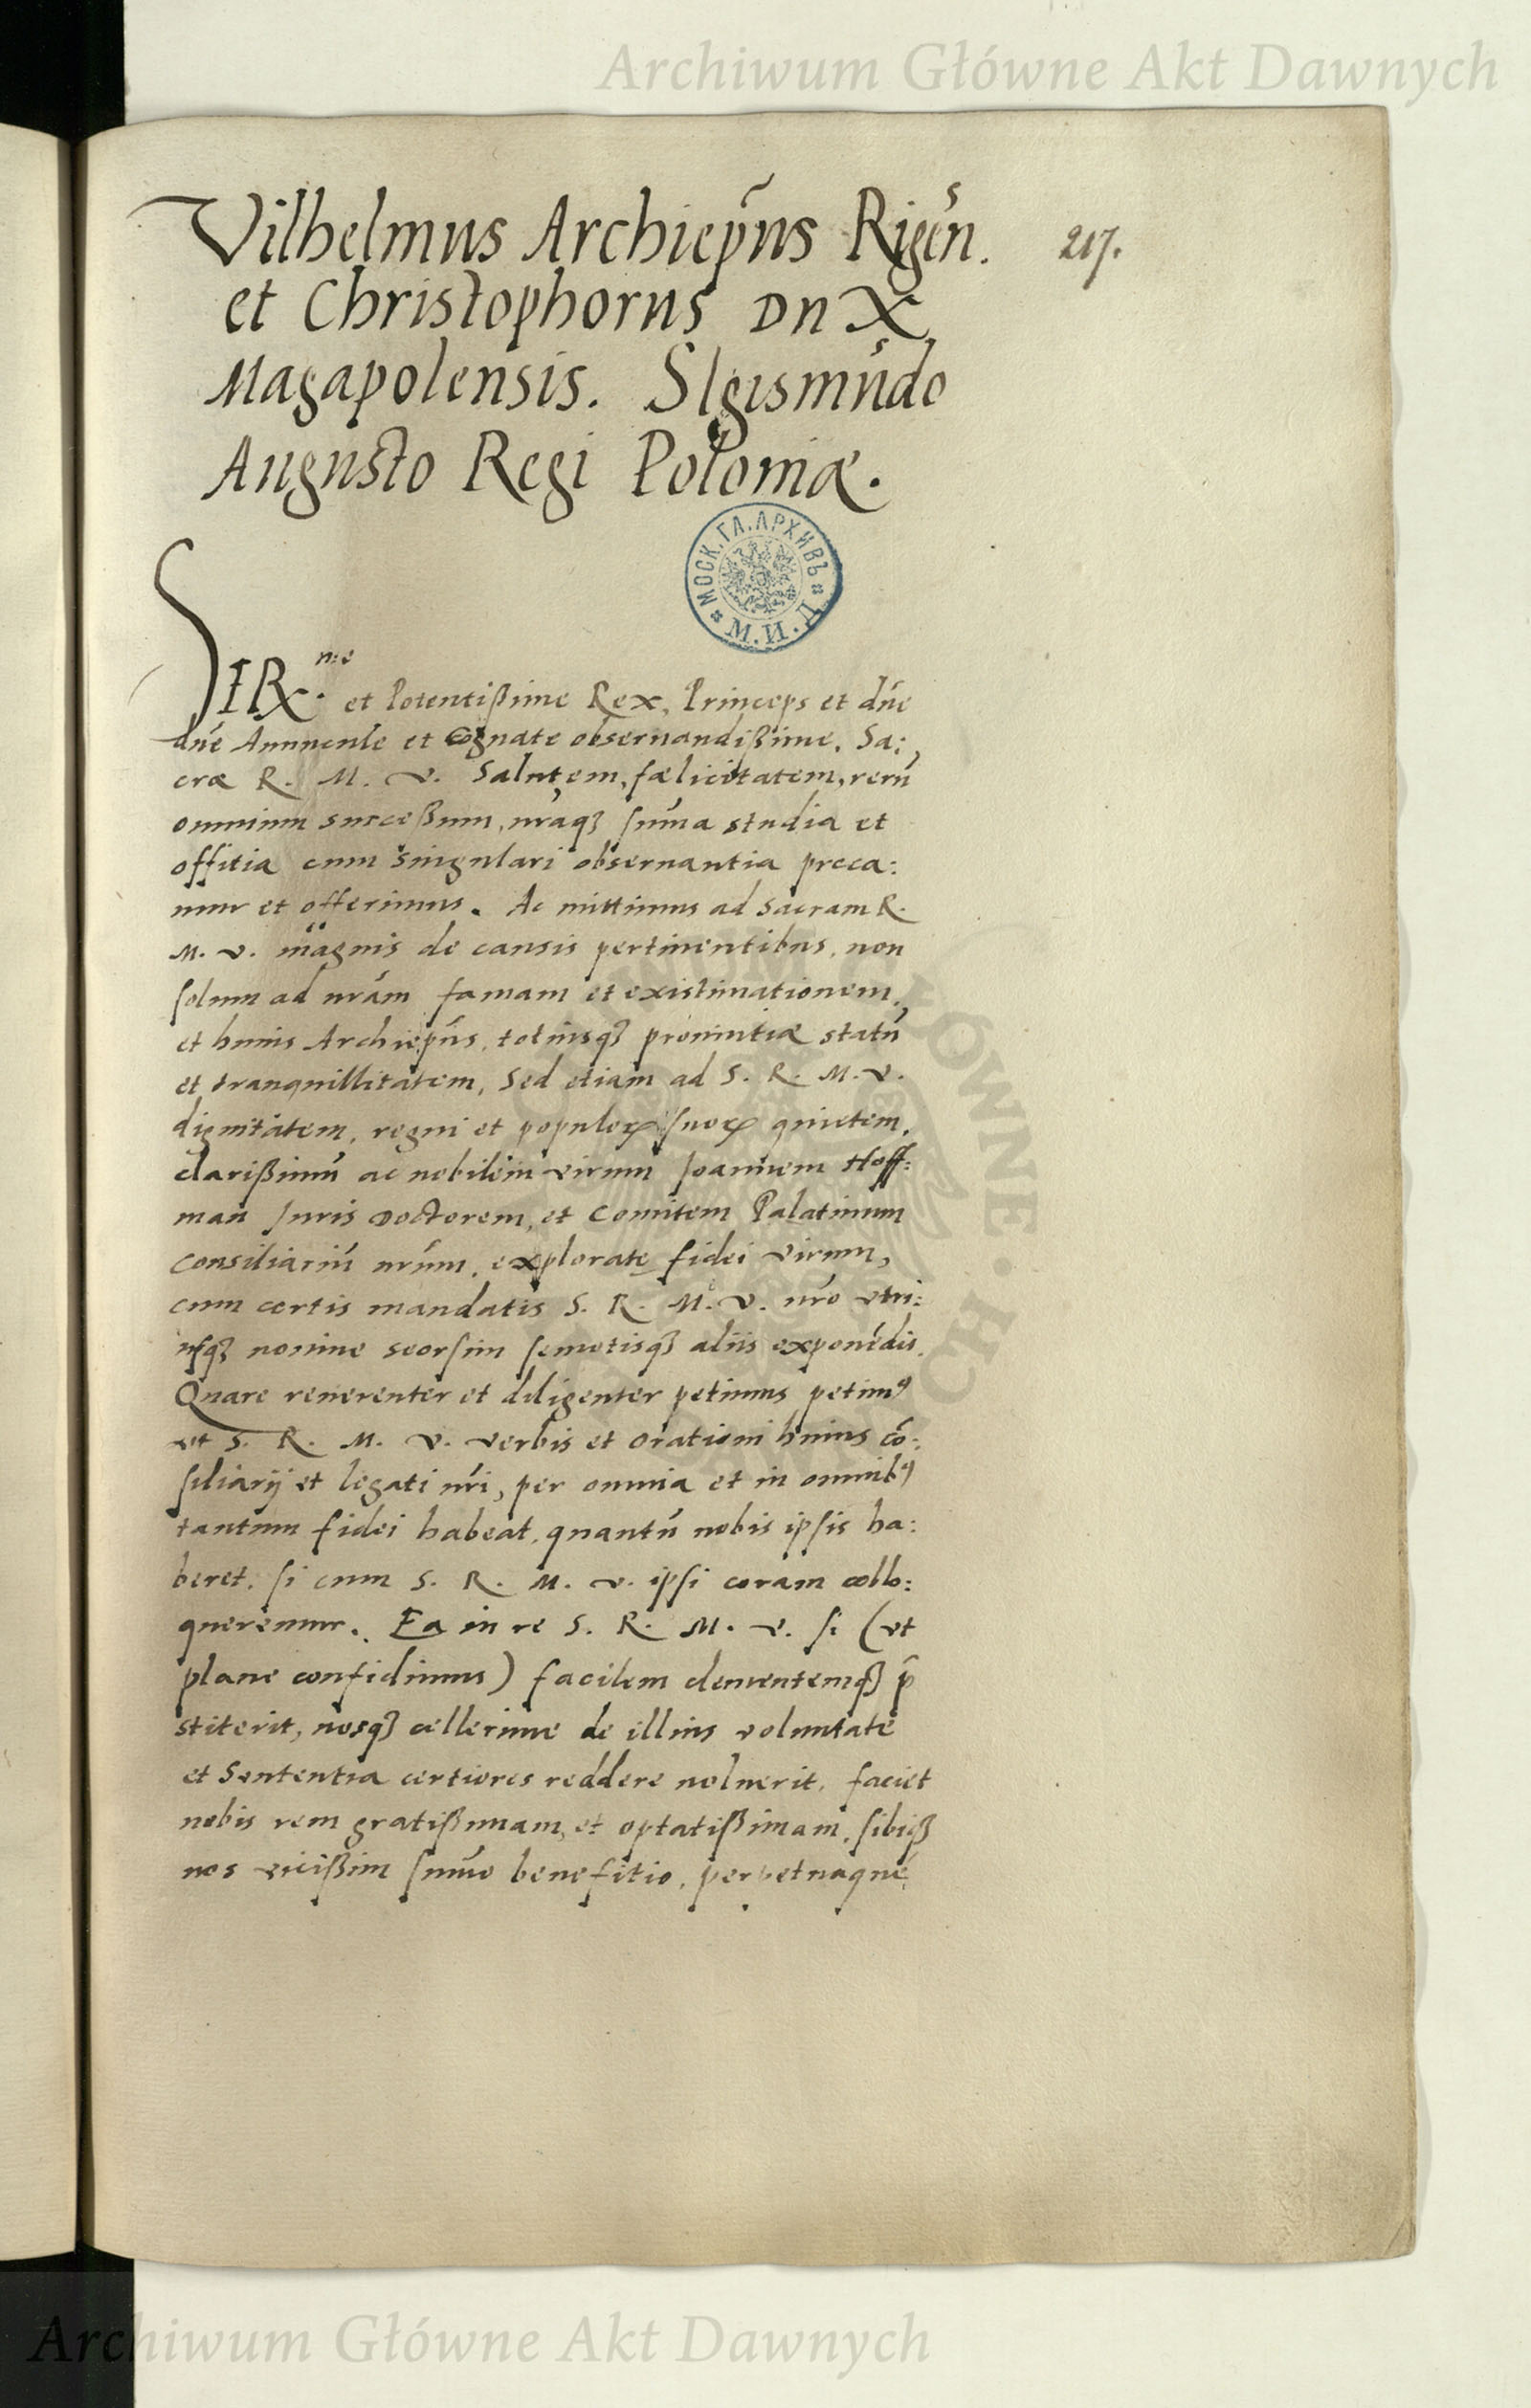 Archiwum Główne Akt Dawnych
Vilhelmus Archiep̃us Rigeñ.
217.
et Christophorus Dux
Magapolensis. Sigismũdo
Augusto Regi Poloniæ.
МОСК. ГЛ. АРХИВЪ
М. И. Д.
SER.me et Potentißime Rex, Princeps et dñe
dñe Auuncule et Cognate obseruandißime. Sa:
cræ R. M. V. Salutem, fælicitatem, rerũ
omnium succeßum, nr̃aq3 sum̃a studia et
offitia cum singulari obseruantia preca:
mur et offerimus. Ac mittimus ad Sacram R.
M. V. magnis de causis pertinentibus, non
solum ad nr̃am famam et existimationem,
et huius Archiep̃us, totiusq3 prouintiæ statũ
et tranquillitatem, Sed etiam ad S. R. M. V.
dignitatem, regni et populoꝝ suoꝝ quietem,
clarißimũ ac nobilem virum Joannem Hoff:
man Juris Doctorem, et Comitem Palatinum
consiliariũ nr̃um, explorate fidei virum,
cum certis mandatis S. R. M. V. nr̃o vtri:
usq3 nomine seorsim semotisq3 aliis exponẽdis.
Quare reuerenter et diligenter petimus petimꝰ
vt S. R. M. V. verbis et orationi huius cõ:
siliarij et legati nr̃i, per omnia et in omnibꝰ
tantum fidei habeat, quantũ nobis ipsis ha:
beret, si cum S. R. M. V. ipsi coram collo:
queremur. Ea in re S. R. M. V. si (vt
plane confidimus) facilem clementemq3 p̃
stiterit, nosq3 cellerime de illius voluntate
et Sententia certiores reddere uoluerit, faciet
nobis rem gratißimam, et optatißimam, sibiq3
nos vicißim sum̃o benefitio, perpetuaque
Archiwum Główne Akt Dawnych